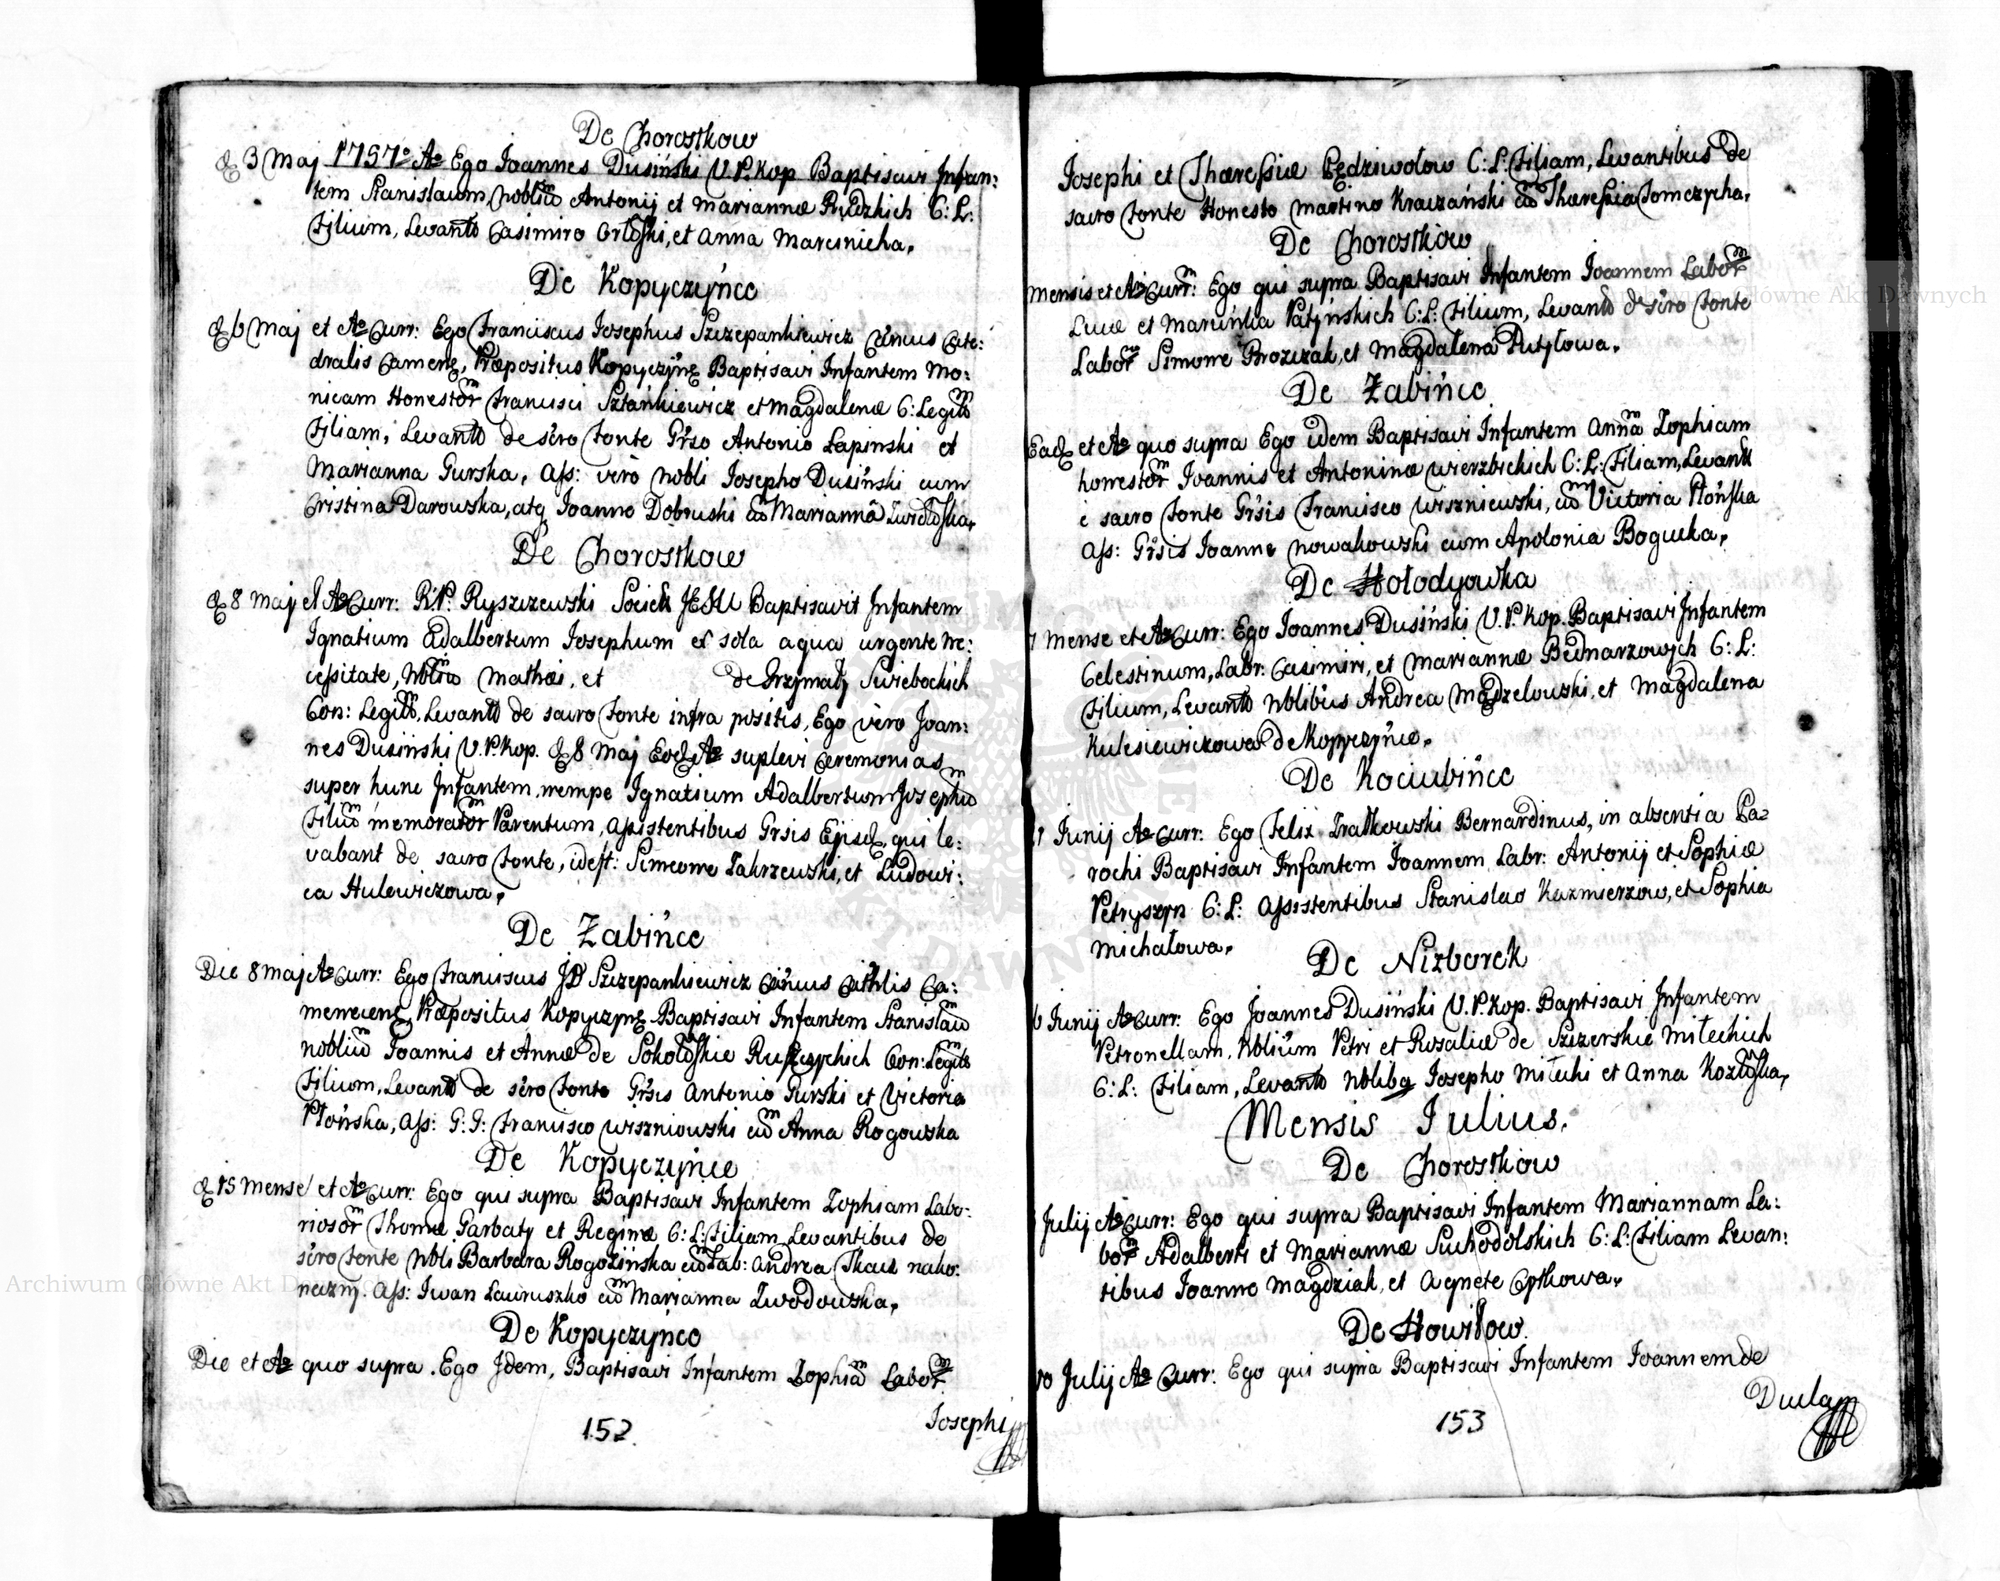 De Chorostkow
3 Maj 1757o Ao Ego Joannes Dusiński V.P.Kop Baptisavi Infan:
tem Stanislaum, Nobliũ Antonij et Mariannæ Rudzkich C: L:
Filium, Levantb Casimiro Orłoski, et Anna Marcinicha.
De Kopyczyńce
6 Maj et Ao Curr: Ego Franciscus Josephus Szczepankiewicz Cancus Cate:
dralis Camene, Præpositus Kopyczyne Baptisavi Infantem Mo:
nicam Honestor Francisci Sztankiewicz et Magdalenæ C: Legitb
Filiam, Levantb de sacro Fonte Grso Antonio Lapinski et
Marianna Gurska, Ass: verò Nobli Josepho Dusiński cum
Cristina Darowska, atq Joanne Dobruski cũ Mariannã
De Chorostkow
8 Maj et Ao Curr: R.P. Ryszczewski Societ JESU Baptisavit Infantem
Ignatium Adalbertum Josephum ex sola aqua urgente ne:
cessitate, Nobliũ Mathæi, et de Grzymały Swiebockich
Con: Legitb, Levantb de sacro Fonte infra positis, Ego vero Joan:
nes Dusiński V.P.Kop. 8 Maj Ao suplevi Ceremonias
super hunc Infantem, nempe Ignatium Adalbertum Josephũ
Filiũ memorator Parentum, Assistentibus Grsis qui le:
vabant de sacro Fonte, idest: Simeone Zakrzewski, et Ludovi:
ca Hulewiczowa.
De Zabińce
Die 8 Maj Ao Curr: Ego Franciscus Szczepankiewicz Cancus Cathlis Ca:
menecens, Præpositus Kopyczyne Baptisavi Infantem Stanislaũ
Nobliũ Joannis et Annæ de Sokołoskie Con: Legitb
Filium, Levantb de sacro Fonte Grsis Antonio Gurski et Victoria
Płońska, Ass: G: G: Francisco Wiszniowski cũ Anna Rogowska
De Kopyczyńce
15 Mense et Ao Curr: Ego qui supra Baptisavi Infantem Zophiam Labo:
riosor Thomæ Garbaty et Reginæ C: L: Filiam, Levantibus de
sacro Fonte Nobli Barbara Rogozińska cũ Lab: Andrea Tkacz nako:
neczny. Ass: Iwan Lawruszko cũ Marianna Zwodowska.
De Kopyczyńce
Die et Ao quo supra. Ego Idem, Baptisavi Infantem Zophiã Labor.
Josephi
152
Josephi et Thæresiæ Pędziwołow C: L: Filiam, Levantibus de
sacro Fonte Honesto Martino Krawzański cũ Thæresia Tomczycha.
De Chorostkow
Mensis et Ao Curr: Ego qui supra Baptisavi Infantem Joannem Labor
Lucæ et Maruńka Patyńskich C: L: Filium, Levantb de sacro Fonte
Labor Simone Brozczak, et Magdalena Putyłowa.
De Zabińce
Ead et Ao quo supra Ego idem Baptisavi Infantem Annã Zophiam
honestor Joannis et Antoninæ Wierzbickich C: L: Filiam, Levantb
e sacro Fonte Grsis Francisco Wiszniewski, cũ Victoria Płońska
Ass: Grsis Joanne Nowakowski cum Apolonia Bogucka.
De Hołodyowka
7 Mense et Ao Curr: Ego Joannes Dusiński V.P.Kop. Baptisavi Infantem
Celestinum, Labr: Casimiri, et Mariannæ Bednarzowych C: L:
Filium, Levantb Noblibus Andrea Mądzelowski, et Magdalena
Kulesiewiczowa de Kopyczyńce.
De Kociubińce
Junij Ao Curr: Ego Felix Bernardinus, in absentia Pa-
rochi Baptisavi Infantem Joannem, Labr: Antonij et Sophiæ
Petryszyn C: L: Assistentibus Stanislao Kazmierzow, et Sophia
Michałowa.
De Nizborek
6 Junij Ao Curr: Ego Joannes Dusiński V.P.Kop. Baptisavi Infantem
Petronellam, Nblium Petri et Rosaliæ de Szczerskie Miłeckich
C: L: Filiam, Levantb Nblibq Josepho Miłecki et Anna Kozłoska.
Mensis Julius.
De Chorostkow
Julij Ao Curr: Ego qui supra Baptisavi Infantem Mariannam La:
bor Adalberti et Mariannæ Suchodolskich C: L: Filiam Levan:
tibus Joanne Magdziak, et Agnete Cptkowa.
De Howiłow.
10 Julij Ao Curr: Ego qui supra Baptisavi Infantem Joannem de
153
Archiwum Główne Akt Dawnych
Archiwum Główne Akt Dawnych